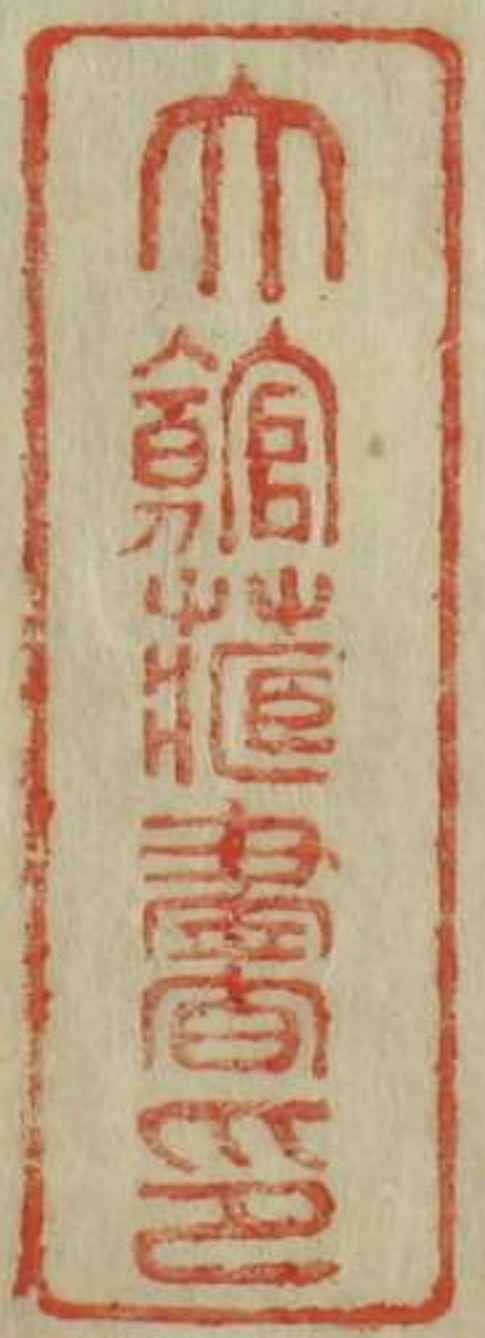 大館藏書印